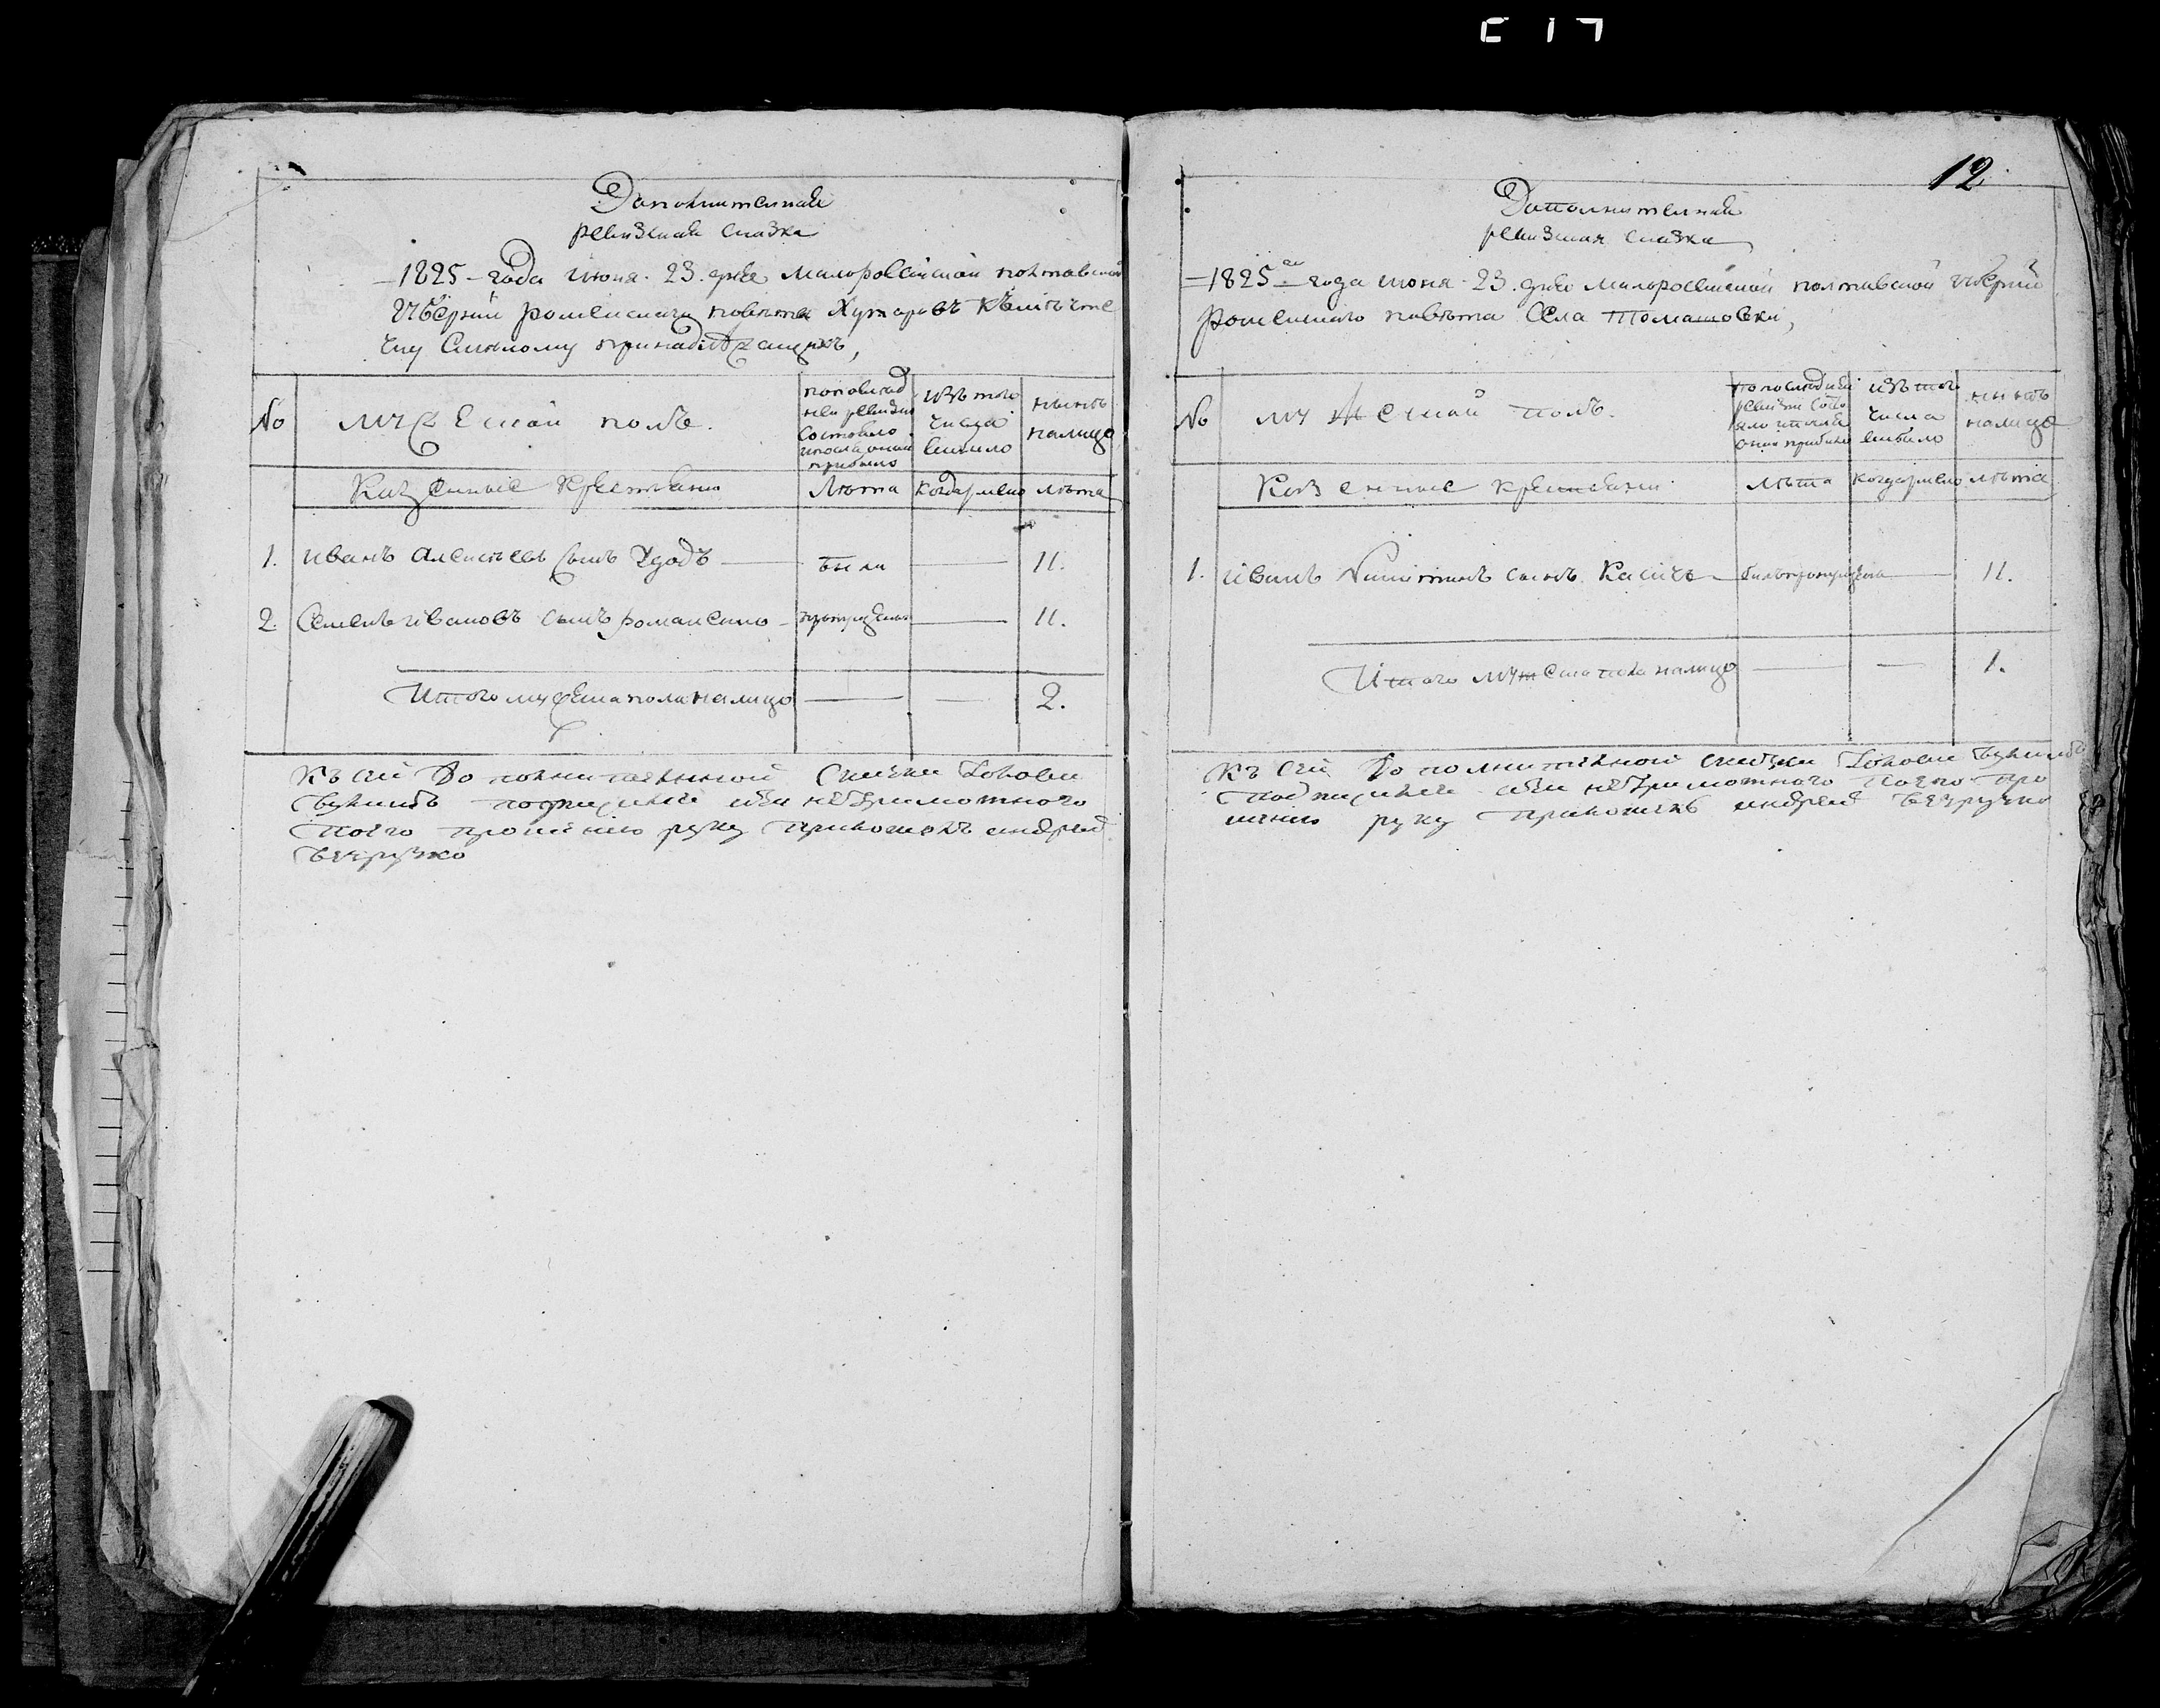 Дополнителная
ревизская сказка
1825 года июня 23 дня Малороссійской полтавской
Губерніи роменскаго повѣта Хуторовъ къ мѣстечке
Смѣлому принадлежащихъ,
№
мужеской полъ.
по послѣд
ней ревизіи
состояло
и после оной
прибыло
изъ того
числа
выбыло
нынѣ
налицо
Казенные крестьяне
Лѣта
когда имено
лѣта
1. иванъ Алексѣевъ сынъ Удодъ были 11.
2. Семенъ ивановъ сынъ романенко пропущенъ 11.
Итого мужеска пола налицо 2.
Къ сей дополнителной сказки
подписался неграмотного
по его прошению руку приложилъ андрей
12
Дополнителная
ревизская сказка
1825 го года июня 23 дня Малороссійской полтавской Губерніи
роменскаго повѣта Села Томашовки,
№
мужеской полъ.
по последней
ревизіи состо
яло и после
оной прибыло
изъ того
числа
выбыло
нынѣ
налицо
Казенные крестьяне
лѣта
когда имено
лѣта
1. иванъ Никитинъ сынъ былъ пропущенъ 11.
Итого мужеска пола налицо 1.
Къ сей дополнителной сказки
подписался неграмотного по его про
шению руку приложилъ андрей